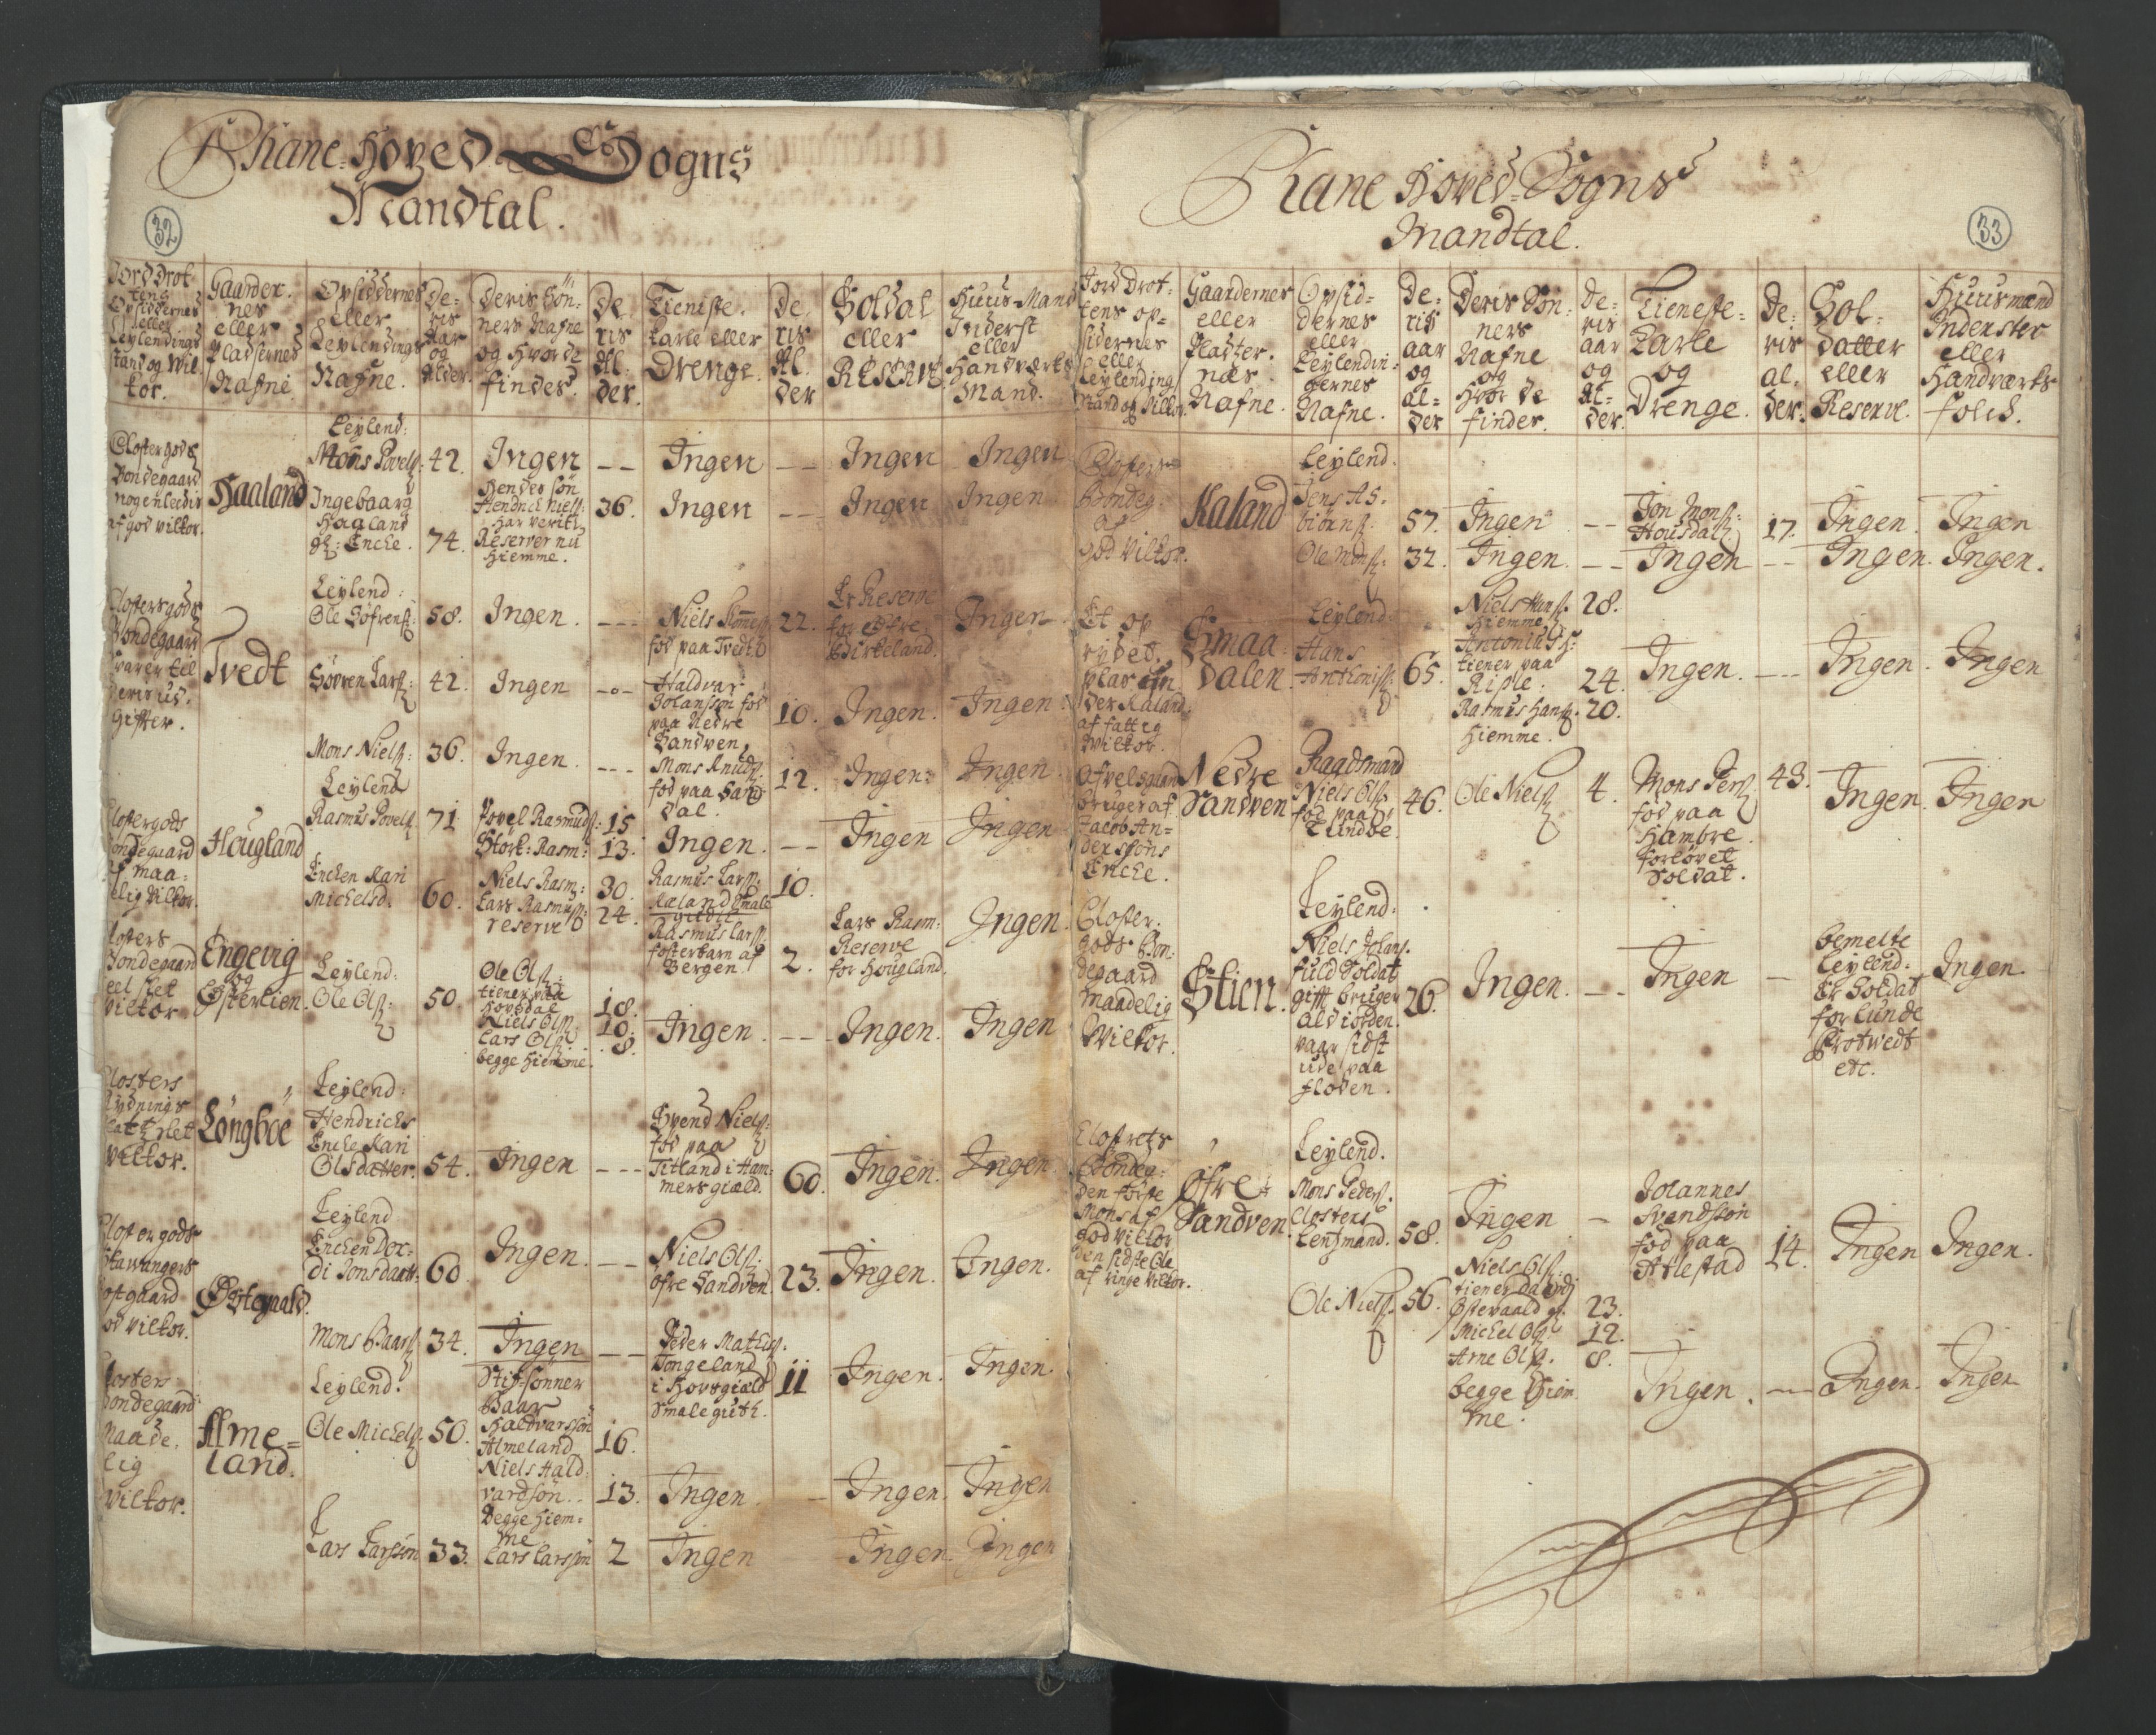 Phane-Hoved Sogns
Mandtal.
32
Jord Drot-
tens
Opsiddernes
eller
Leylendings
stand og Vil-
kor.
Gaarder-
nes
eller
pladsernes
Nafne
Opsiddernes
eller
Leylendings
Nafne.
De-
ris
Aar
og
Alder.
Deris Søn-
ners Nafne
og hvor de
findes.
De
ris
Al-
der.
Tieniste-
karle eller
Drenge.
De
ris
Al-
der
Soldat
eller
Reserve.
Huus-Mand
Inderst
eller
Handverks
Mand.
Closter gods
Bondegaard
nogenledis
af god vilkor.
Haaland
Leylend:
Mons Povels: 42. Ingen -- Ingen -- Ingen Ingen
Ingebaarg
Haaland
gl: Encke. 74.
Hendes søn
Hendrich Niels:
har verit
Reserver nu
hiemme.
36. Ingen -- Ingen Ingen
Clostersgods
Bondegaard
svarer til
deris ud-
gifter.
Tvedt
Leylend:
Ole Søfrens: 58. Ingen. ---
Niels
fød paa Tvedt
22.
Er Reserve
for Øfre
Birkeland.
Ingen
Søvren Lars: 42. Ingen ---
Haldvar
Johansson fød
paa Nedre
Sandven
10. Ingen. Ingen
Mons Niels: 36. Ingen. ---
Mons Knuds.
fød paa Sand
dal.
12. Ingen: Ingen
Clostergods
Bondegaard
af maa-
elig vilkor.
Hougland
Leylend
Rasmus Povels 71
Povel Rasmus: 15
Størk: Rasm: 13.
Ingen. -- Ingen Ingen
Encken Kari
Michelsd. 60.
Niels Rasm: 30.
Lars Rasmus:
reserve 24.
Rasmus Lars:
Kaland Smale
gutte
10.
Rasmus Lars
fosterbarn af
Bergen.
2.
Lars Rasm:
Reserve
for Hougland.
Ingen.
Closters
Bondegaard
eel slet
vilkor
Engevig
og
Østerlien.
Leylend:
Ole Ols: 50
Ole Ols:
tiener paa
Hovsdal 18.
Niels Ols: 10.
Lars Ols: 8.
begge hiemme.
Ingen. --- Ingen. Ingen
Closters
Rydnings
slet
vilkor.
Longböe
Leylend:
Hendrichs
Encke Kari
Olsdatter. 54. Ingen ---
Svend Niels:
fød paa
Titland i Ham-
mers giæld.
60. Ingen. Ingen
Closter gods
Stawangers
Postgaard
god vilkor.
Østevaald.
Leylend
Encken Dor-
di Jonsdaatt: 60 Ingen. --
Niels Ols:
øfre Sandven 23. Ingen. Ingen.
Mons Baars 34. Ingen --
Peder Mathis.
Tongeland
i Hovsgiæld
smale gutt.
11 Ingen. Ingen.
Closters
Bondegaard
Maade-
lig
vilkor.
Alme=
land.
Leylend.
Ole Michels. 50.
Stif-sønner
Baar
Haldvarssøn
Almeland 16.
Niels Hald-
vardsøn.. 13.
Begge hiem-
me
Ingen. Ingen. Ingen
Lars Larssøn 33. Lars Larssøn 2 Ingen Ingen. Ingen
Phane Hoved-Sogns
Mandtal.
33
Jord Drot-
tens op-
sidernes
eller
Leylending
stand og Vilkor.
Gaardernes
eller
Pladser-
nes
Nafne.
Opsid-
dernes
eller
Leylendin-
gernes
Nafne.
De-
ris
aar
og
al-
der
Deris Søn-
ners
Nafne
og
hvor de
findes.
De-
ris
aar
og
Al-
der.
Tieneste-
Karle
og
Drenge.
De-
ris
al-
der.
Sol-
datter
eller
Reserve.
Huusmænd
Inderster
eller
Handværks
folch.
Closters
Bondeg.
af
god Vilkor.
Kaland
Leylend.
Jens As-
biørns. 57. Ingen --
Jon Mons:
Housdal. 17. Ingen. Ingen
Ole Mons. 32. Ingen. -- Ingen -- Ingen. Ingen.
Et op
rydet
plas
der Kaland
af fattig
Vilkor.
Smaa-
dalen.
Leylend.
Hans
Anthonis: 65.
Niels Hans. 28.
hiemme.
Antonius H:
tiener paa
Riple. 24.
Rasmus Hans. 20.
hiemme.
Ingen. --- Ingen. Ingen
Afvelsgaard
bruges af
Jacob An-
derssøns
Encke.
Nedre
Sandven
Raadsmand
Niels Ols.
fød paa
Lundbe
46. Ole Niels 4.
Mons Pers
fød paa
Hambre
forløvet
Soldat.
43. Ingen. Ingen
Closter-
gods Bon-
degaard
maadelig
Vilkor.
Stien.
Leylend:
Niels Johans.
fuld Soldat
gift bruger
ald jorden.
vaar sidst
ude paa
floden.
26. Ingen. -- Ingen --
bemelte
Leylend.
Er Soldat
for Lunde
Protvedt
etc.
Ingen.
Closters
Bondeg:
den første
Mons af
god vilkor
den sidste Ole
af ringe vilkor.
Øfre
Sandven.
Leylend.
Mons Peders.
Closters
Lensmand. 58. Ingen --
Johannes
Svendsøn
fød paa
Atlestad
14. Ingen Ingen.
Ole Niels. 56.
Niels Ols.
tiener
Østevaald 23.
Michel Ols. 12.
Arne Ols. 8.
begge hiem-
me.
Ingen. --- Ingen. Ingen